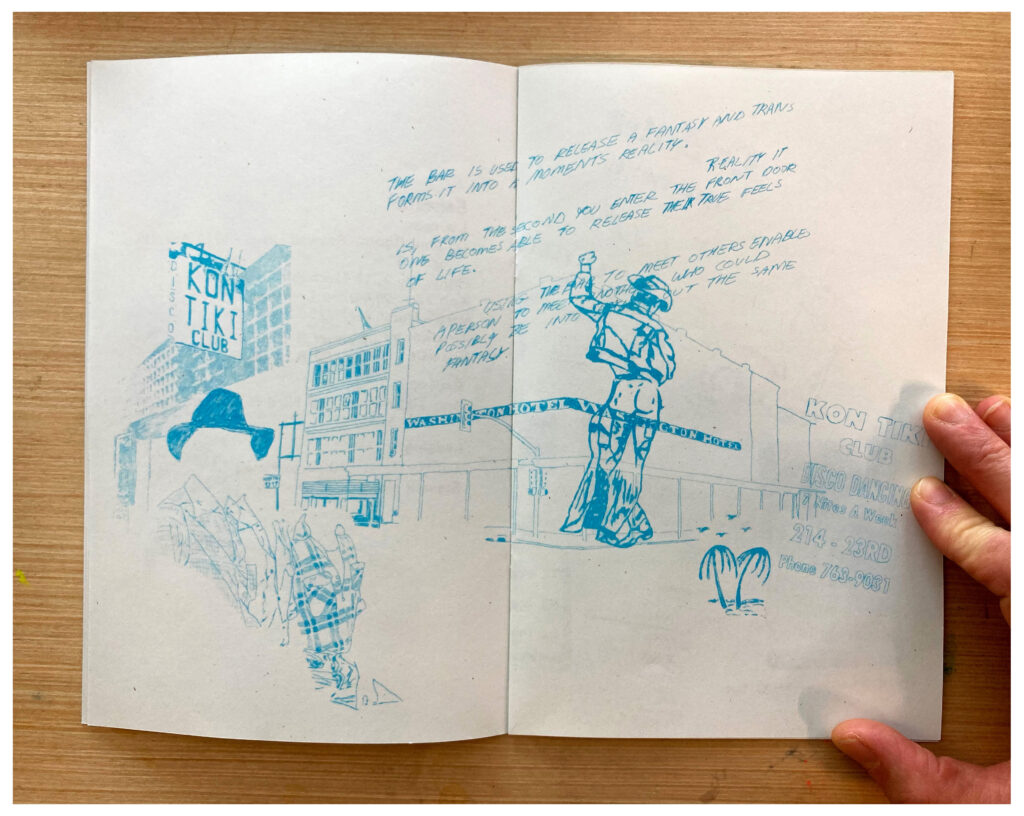 THE BAR IS USED TO RELEASE A FANTASY AND TRANS
FORMS IT INTO A MOMENTS REALITY.
REALITY IT
IS, FROM THE SECOND YOU ENTER THE FRONT DOOR
ONE BECOMES ABLE TO RELEASE THEIR TRUE FEELS
OF LIFE.
USING THE BAR TO MEET OTHERS ENABLES
A PERSON TO MEET ANOTHER WHO COULD
POSSIBLY BE INTO OUT THE SAME
FANTASY.
DISCO
KON
TIKI
CLUB
WASHINGTON HOTEL WASHINGTON HOTEL
KON TIKI
CLUB
DISCO DANCING
Nites A Week
214-23RD
Phone 763-9031